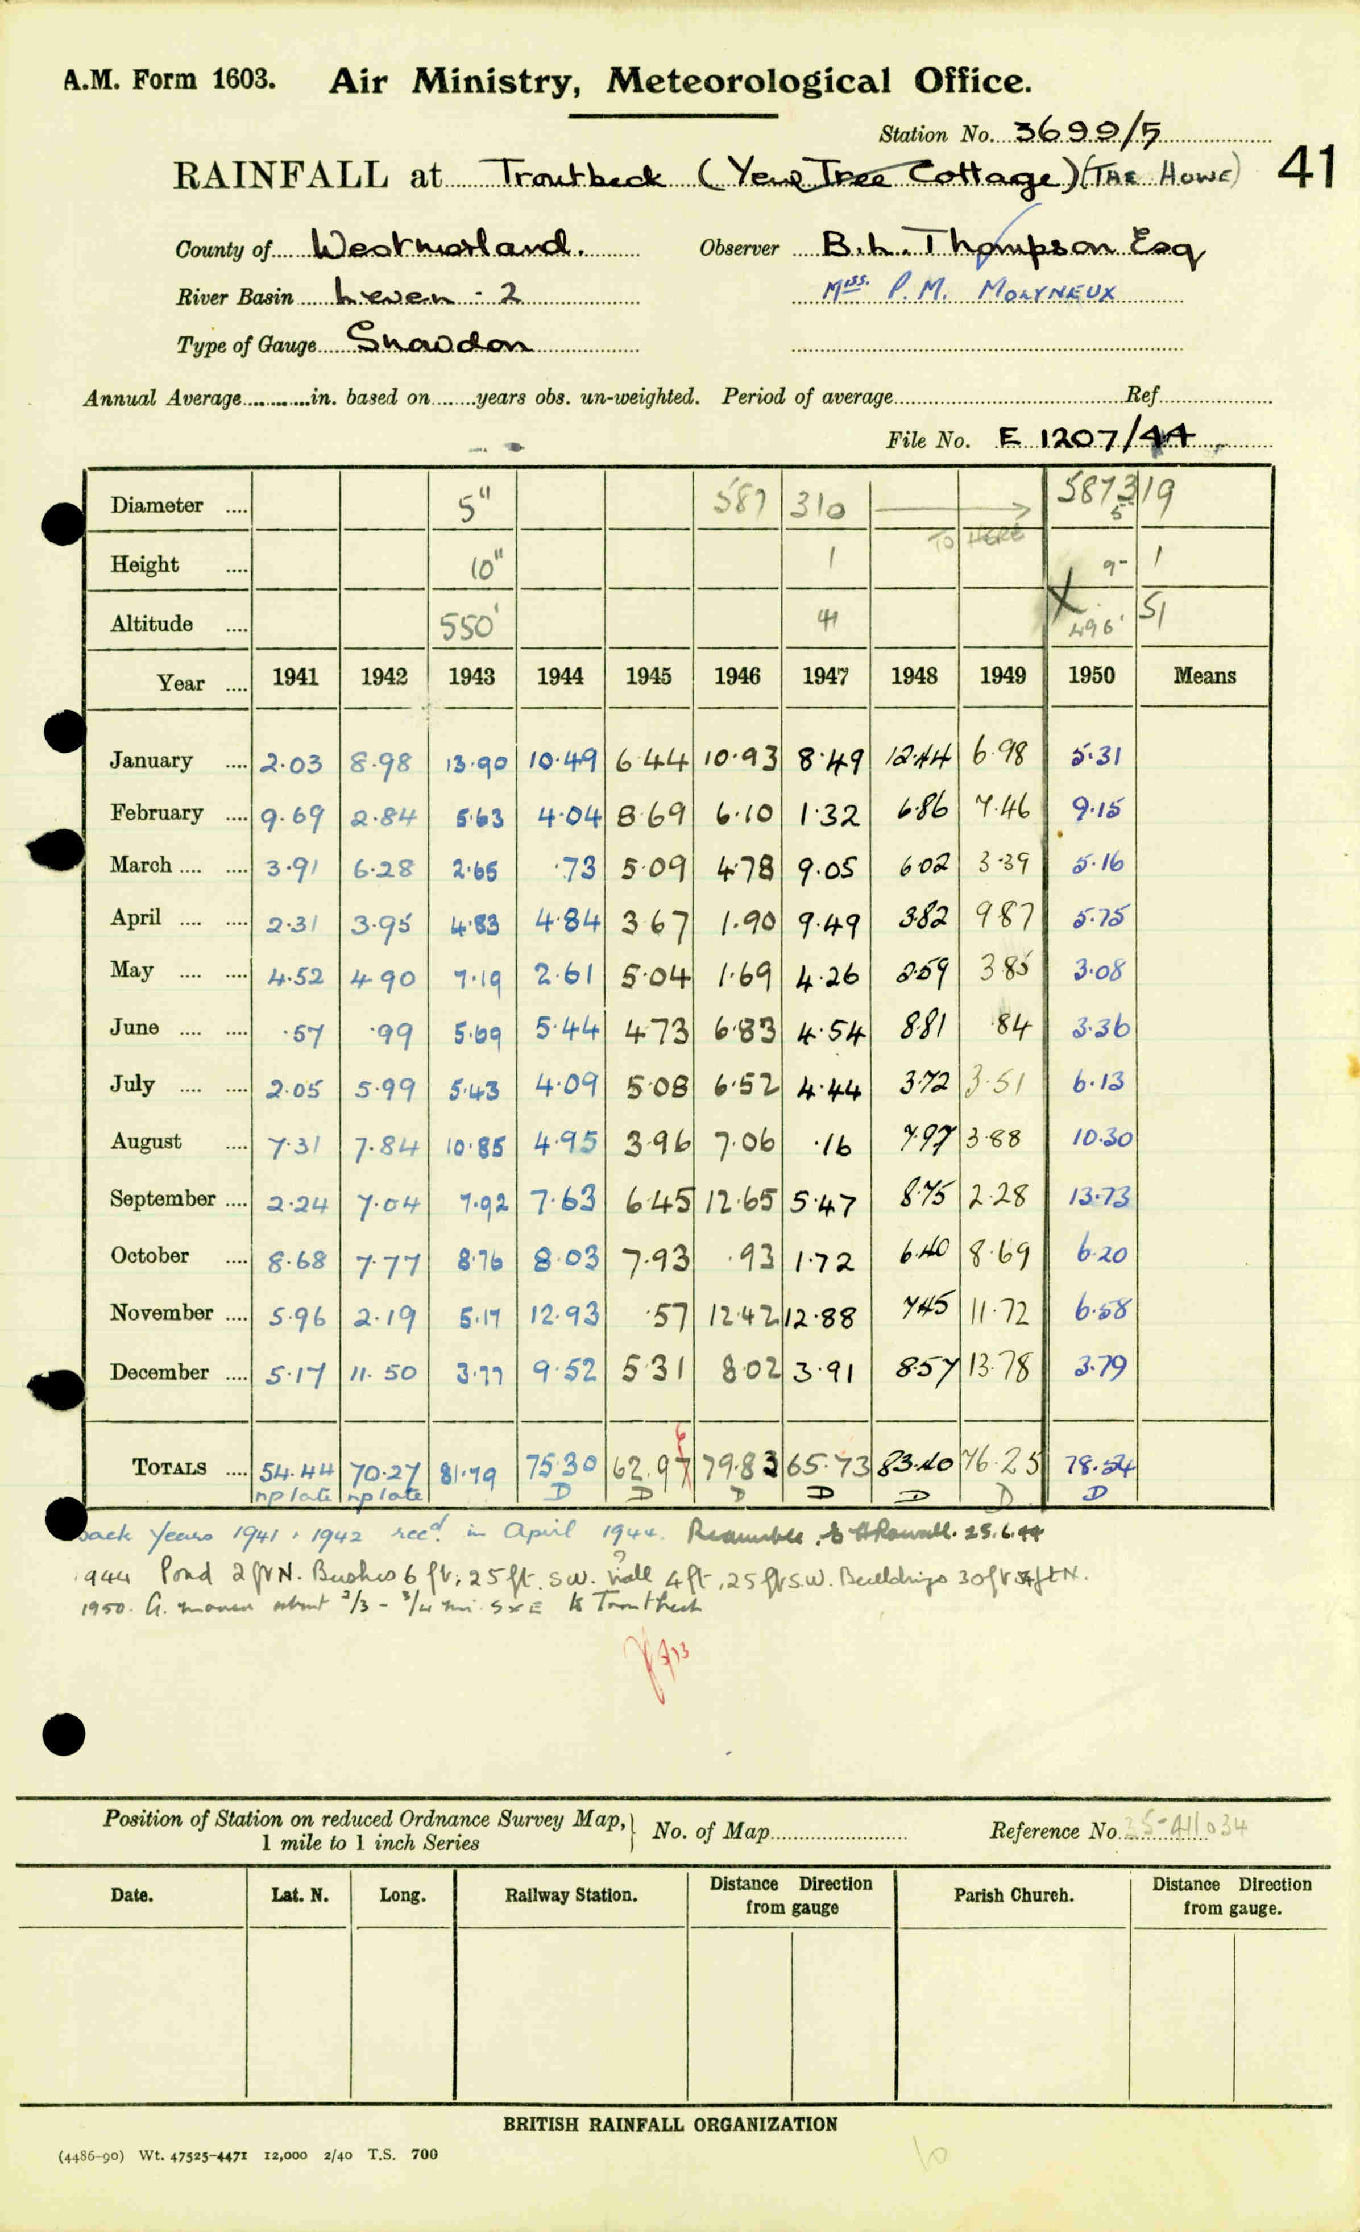 A.M. Form 1603. Air Ministry, Meteorological Office.
Station No. 3699/5
RAINFALL at Troutbeck (Yew Tree Cottage) (THE HOWE) 41
County of Westmorland. Observer B.L. Thompson Esq
River Basin Leven - 2 Miss. P.M. MOLYNEUX
Type of Gauge Snowdon
Annual Average in. based on years obs. un-weighted. Period of average Ref
File No. E 1207/44
Diameter .... 5" 587 310 5873 19
5
TO HERE
Height .... 10" 1 9- 1
Altitude .... 550' 41 496' 51
Year .... 1941 1942 1943 1944 1945 1946 1947 1948 1949 1950 Means
January .... 2.03 8.98 13.90 10.49 6.44 10.93 8.49 12.44 6.98 5.31
February .... 9.69 2.84 5.63 4.04 8.69 6.10 1.32 6.86 7.46 9.15
March .... .... 3.91 6.28 2.65 .73 5.09 4.78 9.05 6.02 3.39 5.16
April .... .... 2.31 3.95 4.83 4.84 3.67 1.90 9.49 3.82 9.87 5.75
May .... .... 4.52 4.90 7.19 2.61 5.04 1.69 4.26 2.59 3.85 3.08
June .... .... .57 .99 5.69 5.44 4.73 6.83 4.54 8.81 .84 3.36
July .... .... 2.05 5.99 5.43 4.09 5.08 6.52 4.44 3.72 3.51 6.13
August .... 7.31 7.84 10.85 4.95 3.96 7.06 .16 7.97 3.88 10.30
September .... 2.24 7.04 7.92 7.63 6.45 12.65 5.47 8.75 2.28 13.73
October .... 8.68 7.77 8.76 8.03 7.93 .93 1.72 6.40 8.69 6.20
November .... 5.96 2.19 5.17 12.93 .57 12.42 12.88 7.45 11.72 6.58
December .... 5.17 11.50 3.77 9.52 5.31 8.02 3.91 8.57 13.78 3.79
6
TOTALS .... 54.44 70.27 81.79 75.30 62.97 79.83 65.73 83.40 76.25 78.54
np late np late D D D D D D D
back years 1941, 1942 recd. in April 1944. 25.6.44
1944 Pond 2 ft N. Bushes 6 ft, 25 ft. S.W. Wall 4 ft, 25 ft S.W. Buildings 30 ft N.
1950. G. moved about 2/3 - 3/4 mi. S x E to Troutbeck
Position of Station on reduced Ordnance Survey Map,
1 mile to 1 inch Series
No. of Map Reference No. 35-411034
Date. Lat. N. Long. Railway Station. Distance from gauge Direction Parish Church. Distance Direction from gauge.
BRITISH RAINFALL ORGANIZATION
(4486-90) Wt. 47525-4471 12,000 2/40 T.S. 700